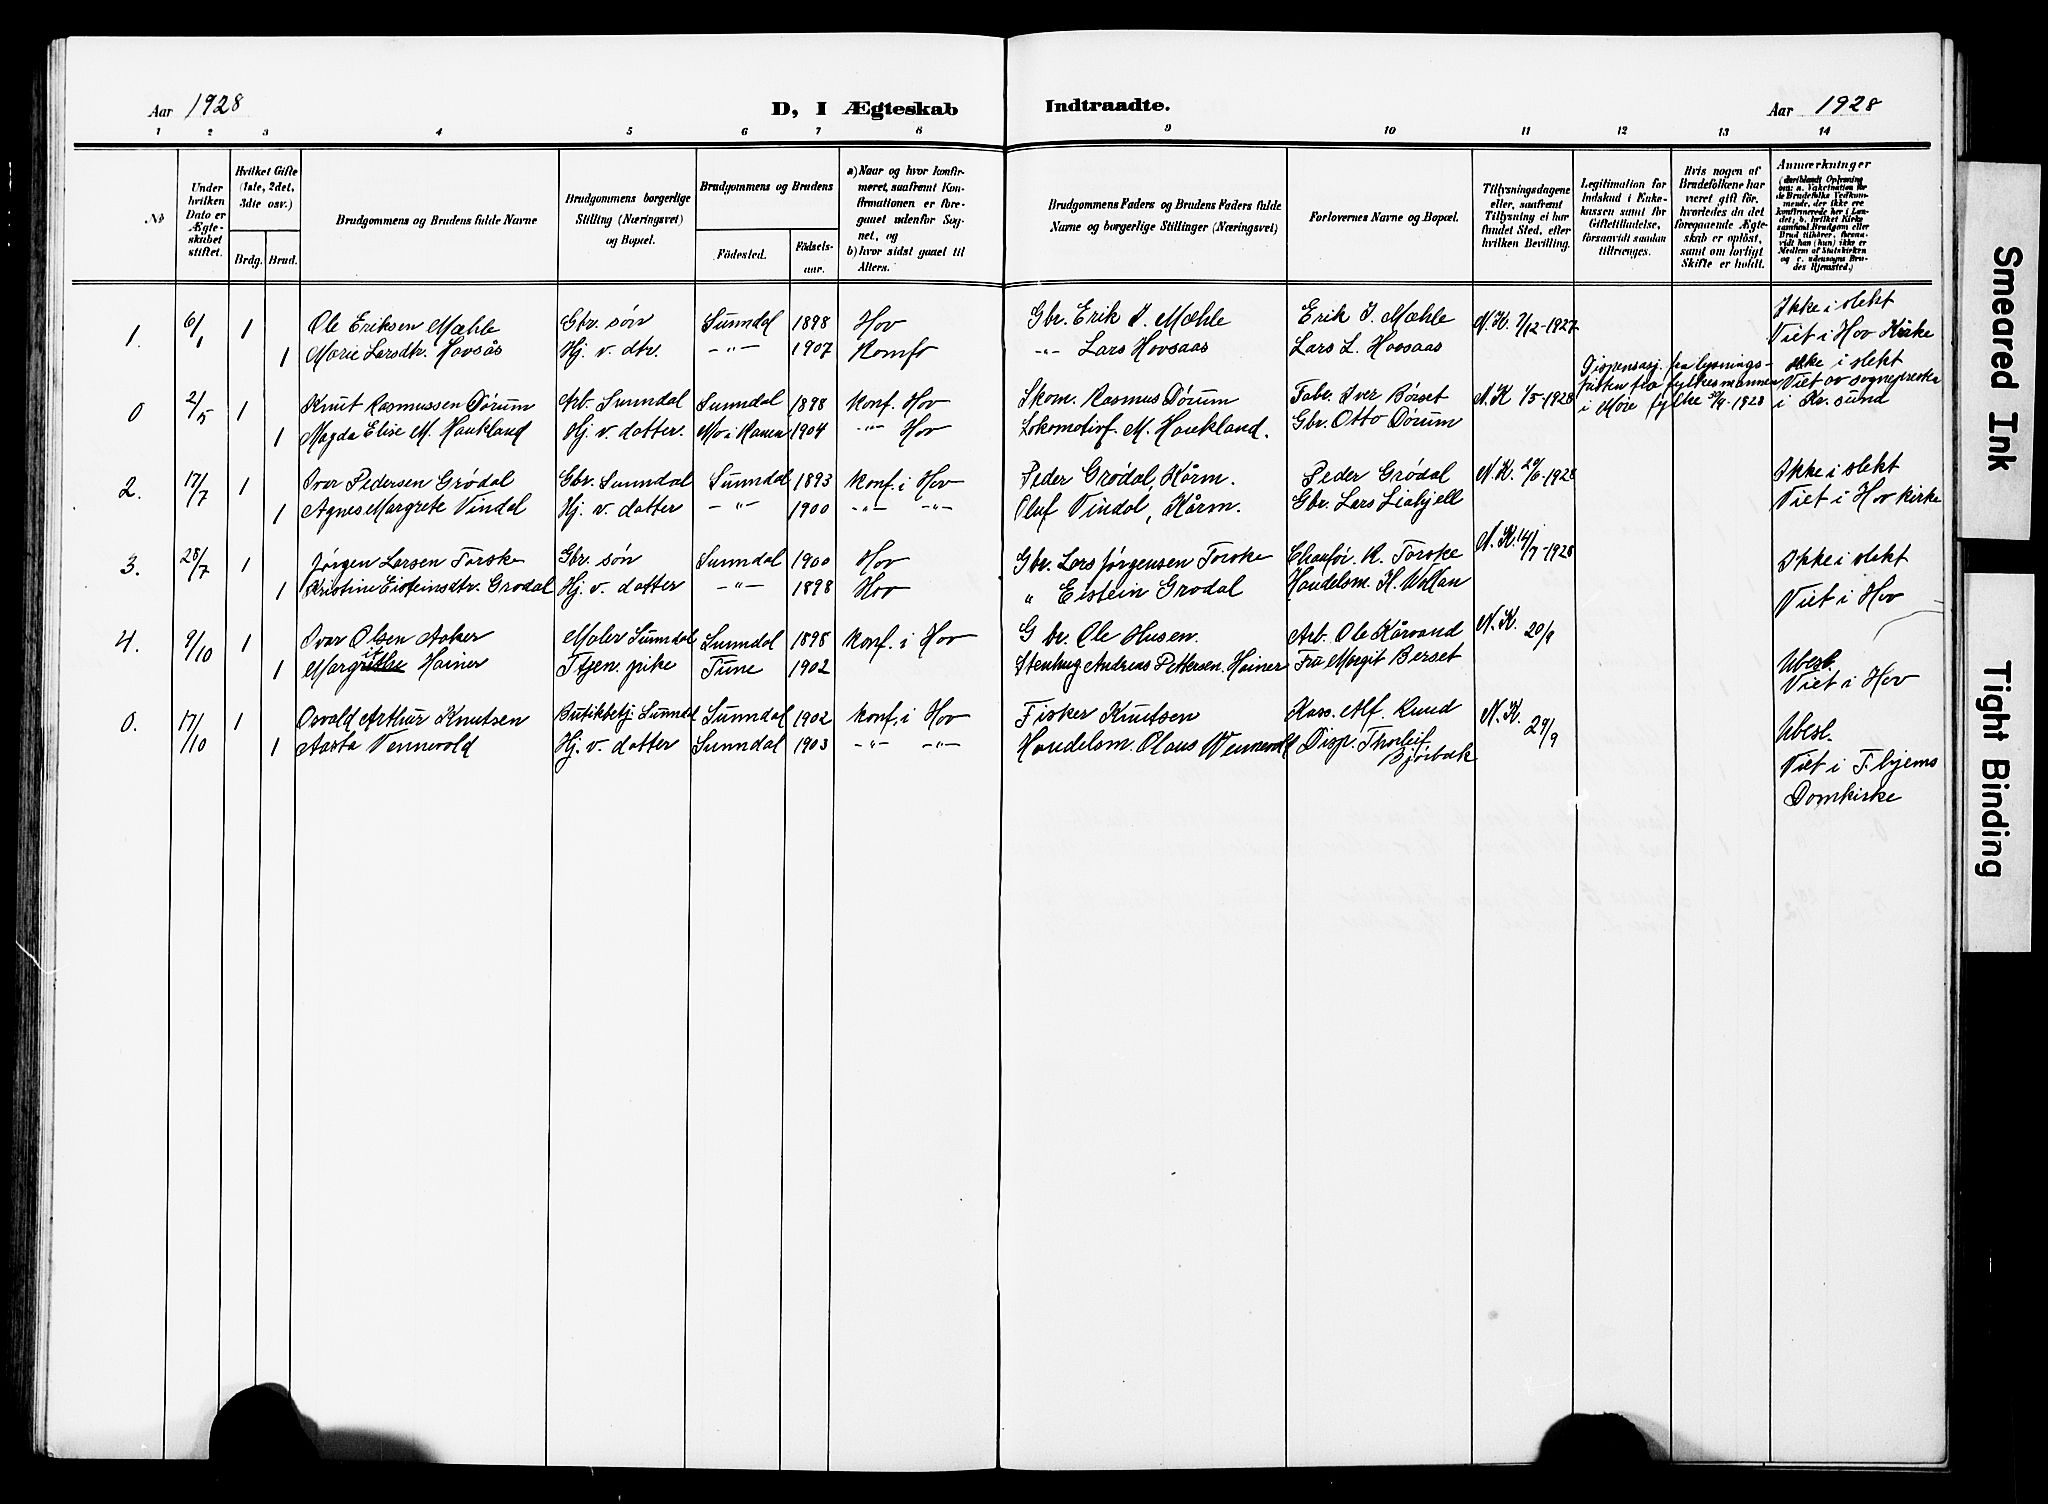 Aar 1928
D, I Ægteskab Indtraadte.
Aar 1928
1 2 3 4 5 6 7 8 9 10 11 12 13 14
No
Under hvilken Dato er Ægteskabet stiftet.
Hvilket Gifte (1ste, 2det, 3die osv.)
Brdg. Brud.
Brudgommens og Brudens fulde Navne
Brudgommens borgerlige Stilling (Næringsvei) og Bopæl.
Brudgommens og Brudens
Födested. Födselsaar.
a) Naar og hvor konfirmeret, saafremt Konfirmationen er foregaaet udenfor Sognet, og
b) hvor sidst gaaet til Alters.
Brudgommens Faders og Brudens Faders fulde Navne og borgerlige Stillinger (Næringsvei)
Forlovernes Navne og Bopæl.
Tillysningsdagene eller, saafremt Tillysning ei har fundet Sted, efter hvilken Bevilling.
Legitimation for Indskud i Enkekassen samt for Giftetilladelse, forsaavidt saadan tiltrænges.
Hvis nogen af Brudefolkene har været gift för, hvorledes da det foregaaende Ægteskab er oplöst, samt om lovligt Skifte er holdt.
Anmærkninger
(deriblandt Oplysning om: a. Vakcination for de Brudefolks Vedkommende, der ikke ere konfirmerede her i Landet; b. hvilket Kirkesamfund Brudgom eller Brud tilhörer, forsaavidt han (hun) ikke er Medlem af Statskirken og c. udensogns Brudes Hjemsted.)
1. 6/1 1 Ole Eriksen Mæhle Gbr. søn Sunndal 1898 Hov Gbr. Erik I. Mæhle Erik I. Mæhle N.K. 7/12-1927 Ikke i slekt
1 Marie Larsdtr. Hovsås Hj. v. dtr. -"- 1907 Romfo -"- Lars Hovsaas Lars L. Hovsaas Viet i Hov Kirke
0 2/5 1 Knut Rasmussen Dørum Arb. Sunndal Sunndal 1898 Konf. Hov Skom. Rasmus Dørum Fabr. Iver Børset N.K 1/5-1928 Dispensasj. fra lysningspligten fra fylkesmannen i Møre fylke 30/4-1928 ikke i slekt
1 Magda Elise M. Haukland Hj. v. datter. Mo i Ranen 1904 -"- Hov Lokomotivf. M. Haukland. Gbr. Otto Dørum Viet av sognepresten i Kr. sund
2. 17/7 1 Iver Pedersen Grødal Gbr. Sunndal Sunndal 1893 Konf. i Hov Peder Grødal, Kårm. Peder Grødal N.K. 29/6-1928 Ikke i slekt
1 Agnes Margrete Vindal Hj. v. datter -"- 1900 -"- -"- Oluf Vindal, Kårm. Gbr. Lars Liahjell Viet i Hov kirke
3. 28/7 1 Jørgen Larsen Forske Gbr. søn Sunndal 1900 Hov Gbr. Lars Jørgensen Forske Chauffør. R. Forske N.K. 14/7-1928 Ikke i slekt
1 Kristine Eisteinsdtr. Grødal Hj. v. datter -"- 1898 Hov " Eistein Grødal Handelsm. H. Viet i Hov
4. 9/10 1 Ivar Olsen Aaker Maler Sunndal Sunndal 1898 Konf. i Hov Gbr. Ole Husen. Arb. Ole Kårvand N.K. 20/9 Ubesl.
1 Margit Hainer Tjen. pike Tune 1902 Stenhug Andreas Pettersen Hainer Fru Margit Berset Viet i Hov
0. 17/10 1 Osvald Arthur Knutsen Butikkbetj. Sunndal Sunndal 1902 Konf. i Hov Fisker Knutsen Kass. Alf. Ruud N.K. 29/9 Ubesl.
1 Aasta Vennevold Hj. v. datter Sunndal 1903 -"- -"- Handelsm. Olaus Vennevold Disp. Thorleif Bjørbæk Viet i T.hjems Domkirke
Smeared Ink
Tight Binding